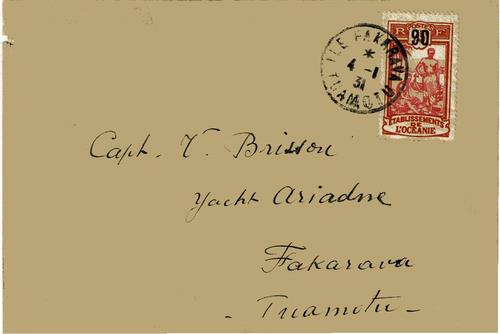 ILE FAKARAVA
*
4 -1
31
TUAMOTU
POSTES
R F
90
ÉTABLISSEMENTS
DE
L'OCÉANIE
Capt. V. Brisson
Yacht Ariadne
Fakarava
- Tuamotu -